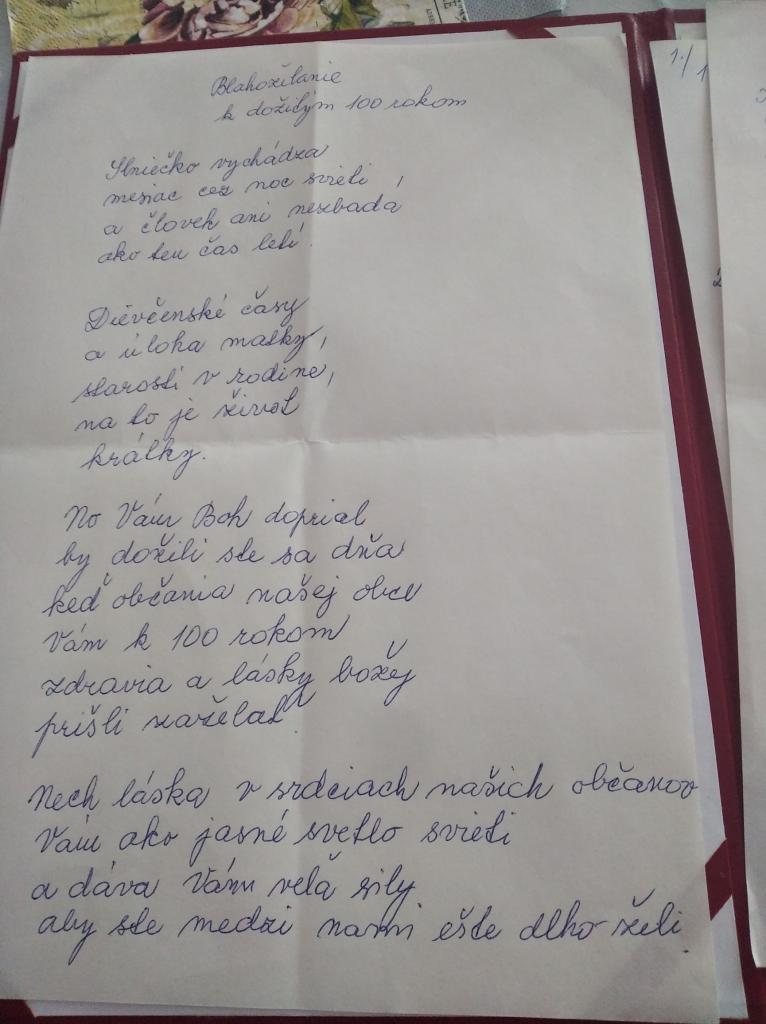 Blahoželanie
k dožitým 100 rokom
Slniečko vychádza
mesiac cez noc svieti,
a človek ani nezbadá
ako ten čas letí.
Dievčenské časy
a úloha matky,
starosti v rodine,
na to je život
krátky.
No Vám Boh doprial
by dožili ste sa dňa
keď občania našej obce
Vám k 100 rokom
zdravia a lásky božej
prišli zaželať.
Nech láska v srdciach našich občanov
Vám ako jasné svetlo svieti
a dáva Vám veľa sily
aby ste medzi nami ešte dlho žili.
1./1